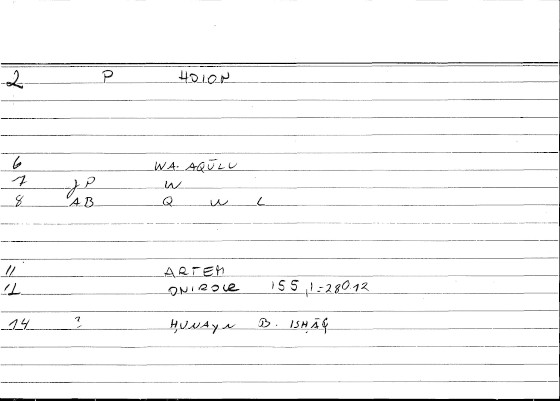 2 P HDION
6 WA-AQŪLU
7 JP W
8 AB Q W L
11 ARTEM
12 ONIROCR 155,1=280,12
14 ? ḤUNAYN B. ISḤĀQ